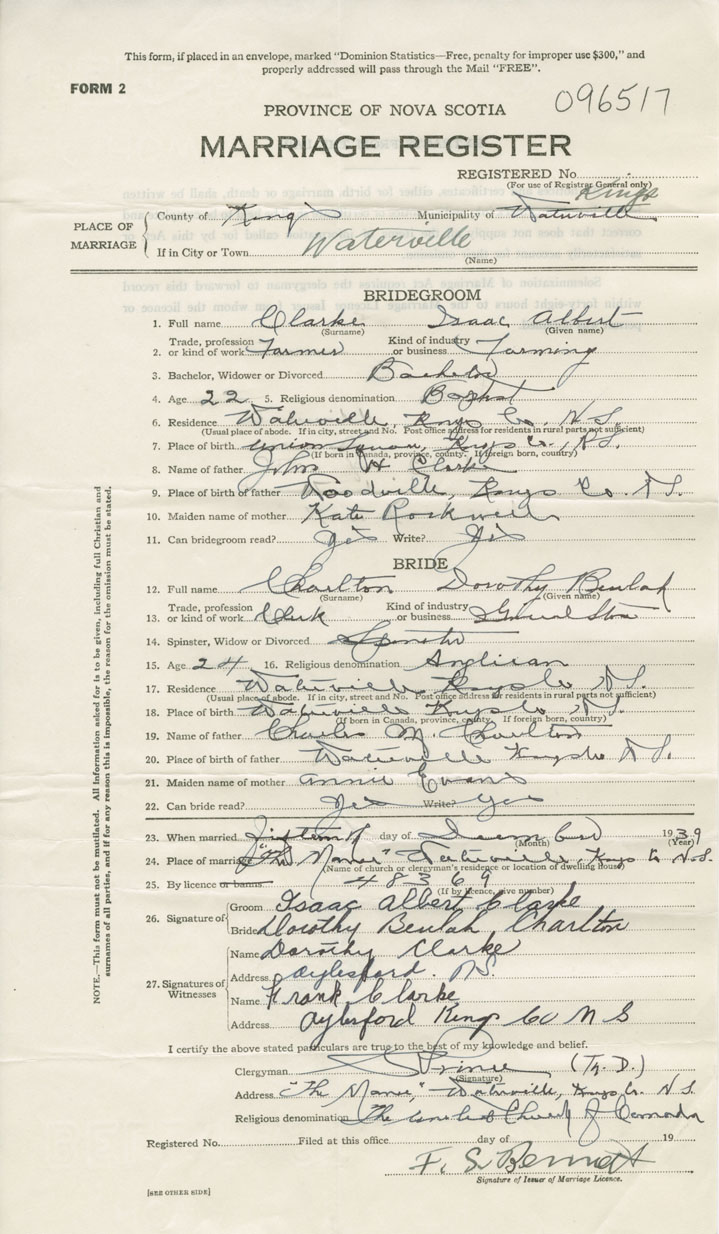 This form, if placed in an envelope, marked "Dominion Statistics—Free, penalty for improper use $300," and
properly addressed will pass through the Mail "FREE".
FORM 2
096517
PROVINCE OF NOVA SCOTIA
MARRIAGE REGISTER
REGISTERED No.
(For use of Registrar General only)
Kings
PLACE OF MARRIAGE
County of Kings Municipality of Waterville
If in City or Town Waterville
(Name)
BRIDEGROOM
1. Full name Clarke Isaac Albert
(Surname) (Given name)
2. Trade, profession or kind of work Farmer Kind of industry or business Farming
3. Bachelor, Widower or Divorced Bachelor
4. Age 22 5. Religious denomination Baptist
6. Residence Waterville, Kings Co., N.S.
(Usual place of abode. If in city, street and No. Post office address for residents in rural parts not sufficient)
7. Place of birth Union Square, Kings Co., N.S.
(If born in Canada, province, county. If foreign born, country)
8. Name of father John H Clarke
9. Place of birth of father Woodville, Kings Co. N.S.
10. Maiden name of mother Kate Rockwell
11. Can bridegroom read? Yes Write? Yes
BRIDE
12. Full name Charlton Dorothy Beulah
(Surname) (Given name)
13. Trade, profession or kind of work Clerk Kind of industry or business General Store
14. Spinster, Widow or Divorced Spinster
15. Age 24 16. Religious denomination Anglican
17. Residence Waterville Kings Co N.S.
(Usual place of abode. If in city, street and No. Post office address for residents in rural parts not sufficient)
18. Place of birth Waterville Kings Co N.S.
(If born in Canada, province, county. If foreign born, country)
19. Name of father Charles M. Charlton
20. Place of birth of father Waterville Kings Co N.S.
21. Maiden name of mother Annie Evans
22. Can bride read? Yes Write? Yes
23. When married Fifteenth day of December 1939
(Month) (Year)
24. Place of marriage "The Manse" Waterville, Kings Co N.S.
(Name of church or clergyman's residence or location of dwelling house)
25. By licence or banns 48369
(If by licence, give number)
26. Signature of
Groom Isaac Albert Clarke
Bride Dorothy Beulah Charlton
27. Signatures of Witnesses
Name Dorothy Clarke
Address Aylesford. N.S.
Name Frank Clarke
Address Aylesford Kings Co N S
I certify the above stated particulars are true to the best of my knowledge and belief.
Clergyman Prince (Th. D.)
(Signature)
Address "The Manse," Waterville, Kings Co. N.S.
Religious denomination The United Church of Canada
Registered No. Filed at this office day of 19
F. S. Bennett
Signature of Issuer of Marriage Licence.
[SEE OTHER SIDE]
NOTE.—This form must not be mutilated. All information asked for is to be given, including full Christian and
surnames of all parties, and if for any reason this is impossible, the reason for the omission must be stated.